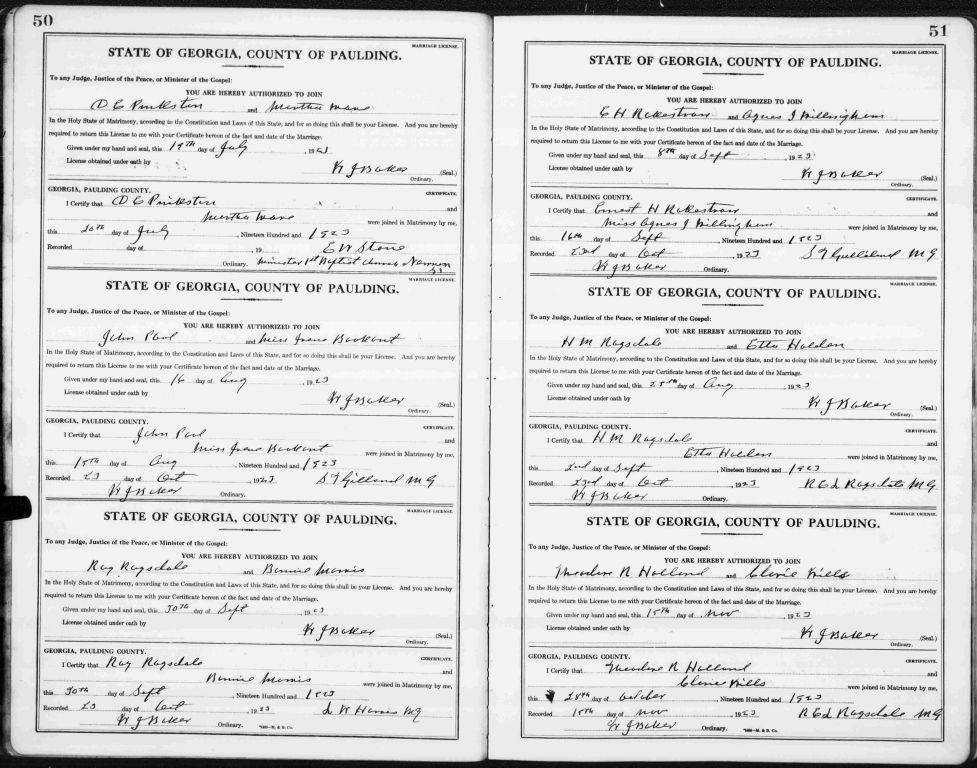 50
MARRIAGE LICENSE.
STATE OF GEORGIA, COUNTY OF PAULDING.
To any Judge, Justice of the Peace, or Minister of the Gospel:
YOU ARE HEREBY AUTHORIZED TO JOIN
D C Pinkston and
In the Holy State of Matrimony, according to the Constitution and Laws of this State, and for so doing this shall be your License. And you are hereby
required to return this License to me with your Certificate hereon of the fact and date of the Marriage.
Given under my hand and seal, this 19th day of July, 1923
License obtained under oath by
W J Baker (Seal.)
Ordinary.
GEORGIA, PAULDING COUNTY. CERTIFICATE.
I Certify that D C Pinkston and
were joined in Matrimony by me,
this 20th day of July, Nineteen Hundred and 1923
Recorded day of , 19 E W Stone
Ordinary. Minister 1st Baptist Church Newnan
Ga
MARRIAGE LICENSE.
STATE OF GEORGIA, COUNTY OF PAULDING.
To any Judge, Justice of the Peace, or Minister of the Gospel:
YOU ARE HEREBY AUTHORIZED TO JOIN
John Pool and Miss Irene
In the Holy State of Matrimony, according to the Constitution and Laws of this State, and for so doing this shall be your License. And you are hereby
required to return this License to me with your Certificate hereon of the fact and date of the Marriage.
Given under my hand and seal, this day of Aug, 1923
License obtained under oath by
W J Baker (Seal.)
Ordinary.
GEORGIA, PAULDING COUNTY. CERTIFICATE.
I Certify that John Pool and
Miss Irene were joined in Matrimony by me,
this day of Aug, Nineteen Hundred and 1923
Recorded 23 day of Oct, 1923 S T Gilland M G
W J Baker Ordinary.
MARRIAGE LICENSE.
STATE OF GEORGIA, COUNTY OF PAULDING.
To any Judge, Justice of the Peace, or Minister of the Gospel:
YOU ARE HEREBY AUTHORIZED TO JOIN
Ray Ragsdale and Bonnie Morris
In the Holy State of Matrimony, according to the Constitution and Laws of this State, and for so doing this shall be your License. And you are hereby
required to return this License to me with your Certificate hereon of the fact and date of the Marriage.
Given under my hand and seal, this 30th day of Sept, 1923
License obtained under oath by
W J Baker (Seal.)
Ordinary.
GEORGIA, PAULDING COUNTY. CERTIFICATE.
I Certify that Ray Ragsdale and
Bonnie Morris were joined in Matrimony by me,
this 30th day of Sept, Nineteen Hundred and 1923
Recorded 23 day of Oct, 1923 L W Harris MG
W J Baker Ordinary.
51
MARRIAGE LICENSE.
STATE OF GEORGIA, COUNTY OF PAULDING.
To any Judge, Justice of the Peace, or Minister of the Gospel:
YOU ARE HEREBY AUTHORIZED TO JOIN
E H Rakestraw and Agnes J Willingham
In the Holy State of Matrimony, according to the Constitution and Laws of this State, and for so doing this shall be your License. And you are hereby
required to return this License to me with your Certificate hereon of the fact and date of the Marriage.
Given under my hand and seal, this 8th day of Sept, 1923
License obtained under oath by
W J Baker (Seal.)
Ordinary.
GEORGIA, PAULDING COUNTY. CERTIFICATE.
I Certify that Ernest H Rakestraw and
Miss Agnes J Willingham were joined in Matrimony by me,
this 16th day of Sept, Nineteen Hundred and 1923
Recorded 23rd day of Oct, 1923 S T Gilleland M G
W J Baker Ordinary.
MARRIAGE LICENSE.
STATE OF GEORGIA, COUNTY OF PAULDING.
To any Judge, Justice of the Peace, or Minister of the Gospel:
YOU ARE HEREBY AUTHORIZED TO JOIN
H M Ragsdale and Etta Holden
In the Holy State of Matrimony, according to the Constitution and Laws of this State, and for so doing this shall be your License. And you are hereby
required to return this License to me with your Certificate hereon of the fact and date of the Marriage.
Given under my hand and seal, this 28th day of Aug, 1923
License obtained under oath by
W J Baker (Seal.)
Ordinary.
GEORGIA, PAULDING COUNTY. CERTIFICATE.
I Certify that H M Ragsdale and
Etta Holden were joined in Matrimony by me,
this 2nd day of Sept, Nineteen Hundred and 1923
Recorded 23rd day of Oct, 1923 R E L Ragsdale M G
W J Baker Ordinary.
MARRIAGE LICENSE.
STATE OF GEORGIA, COUNTY OF PAULDING.
To any Judge, Justice of the Peace, or Minister of the Gospel:
YOU ARE HEREBY AUTHORIZED TO JOIN
Theodore R Holland and Clovie Mills
In the Holy State of Matrimony, according to the Constitution and Laws of this State, and for so doing this shall be your License. And you are hereby
required to return this License to me with your Certificate hereon of the fact and date of the Marriage.
Given under my hand and seal, this 15th day of Nov, 1923
License obtained under oath by
W J Baker (Seal.)
Ordinary.
GEORGIA, PAULDING COUNTY. CERTIFICATE.
I Certify that Theodore R Holland and
Clovie Mills were joined in Matrimony by me,
this 28th day of October, Nineteen Hundred and 1923
Recorded 15th day of Nov, 1923 R E L Ragsdale M G
W J Baker Ordinary.